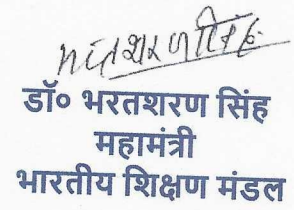 भरतशरण सिंह
डॉ० भरतशरण सिंह
महामंत्री
भारतीय शिक्षण मंडल